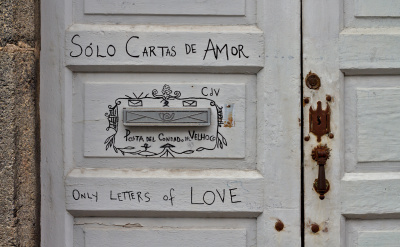 Sólo Cartas de Amor
CdV
Posta del Condado de Velhoco
Only Letters of LOVE